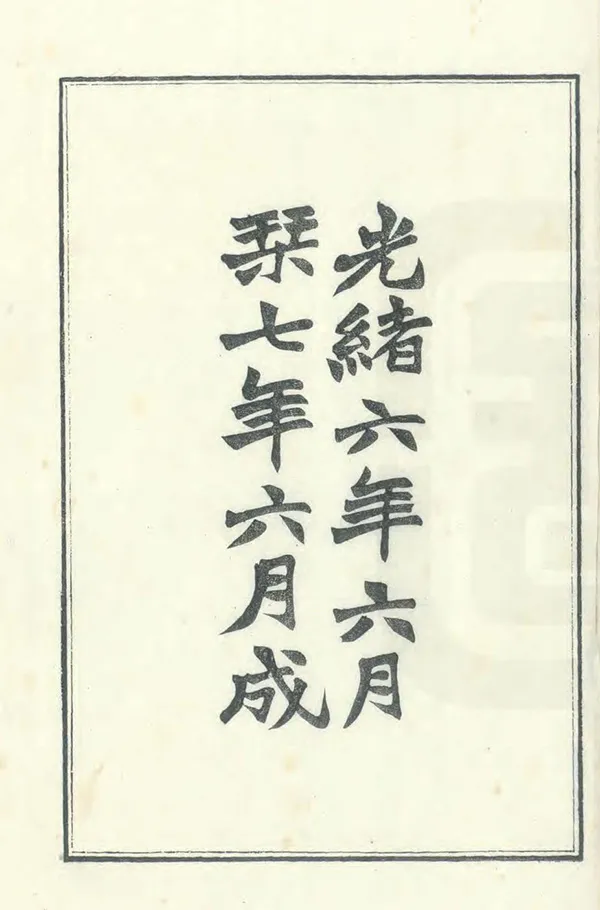 光緒六年六月
栞七年六月成